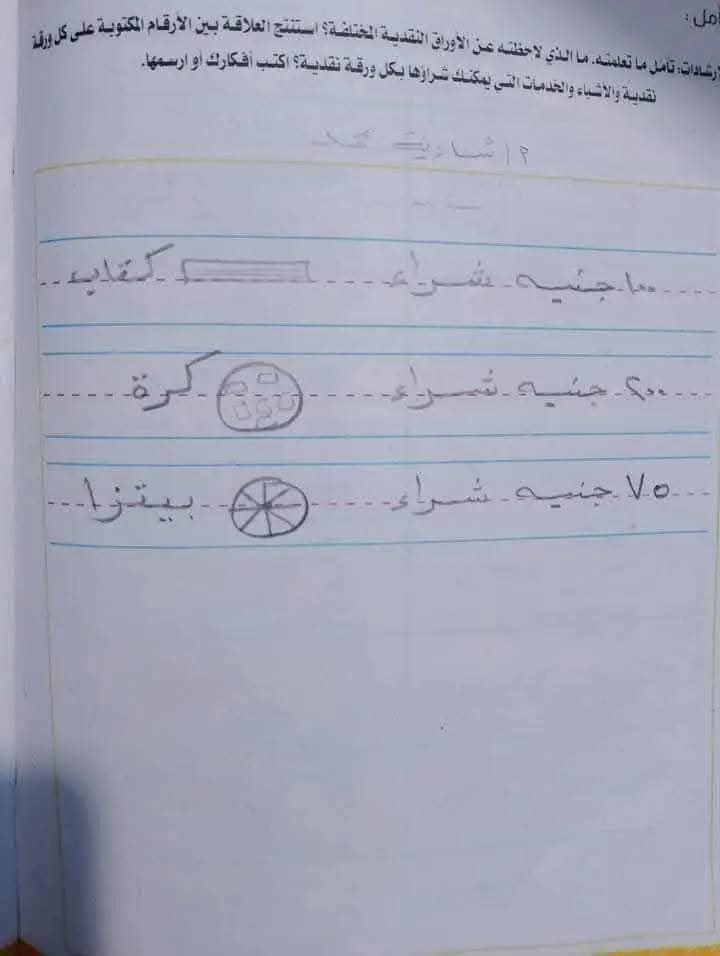 أمل :
إرشادات: تأمل ما تعلمته. ما الذي لاحظته عن الأوراق النقدية المختلفة؟ استنتج العلاقة بين الأرقام المكتوبة على كل ورقة
نقدية والأشياء والخدمات التي يمكنك شراؤها بكل ورقة نقدية؟ اكتب أفكارك أو ارسمها.
١٠٠ جنيه شراء كتاب
٢٠٠ جنيه شراء كرة
٧٥ جنيه شراء بيتزا